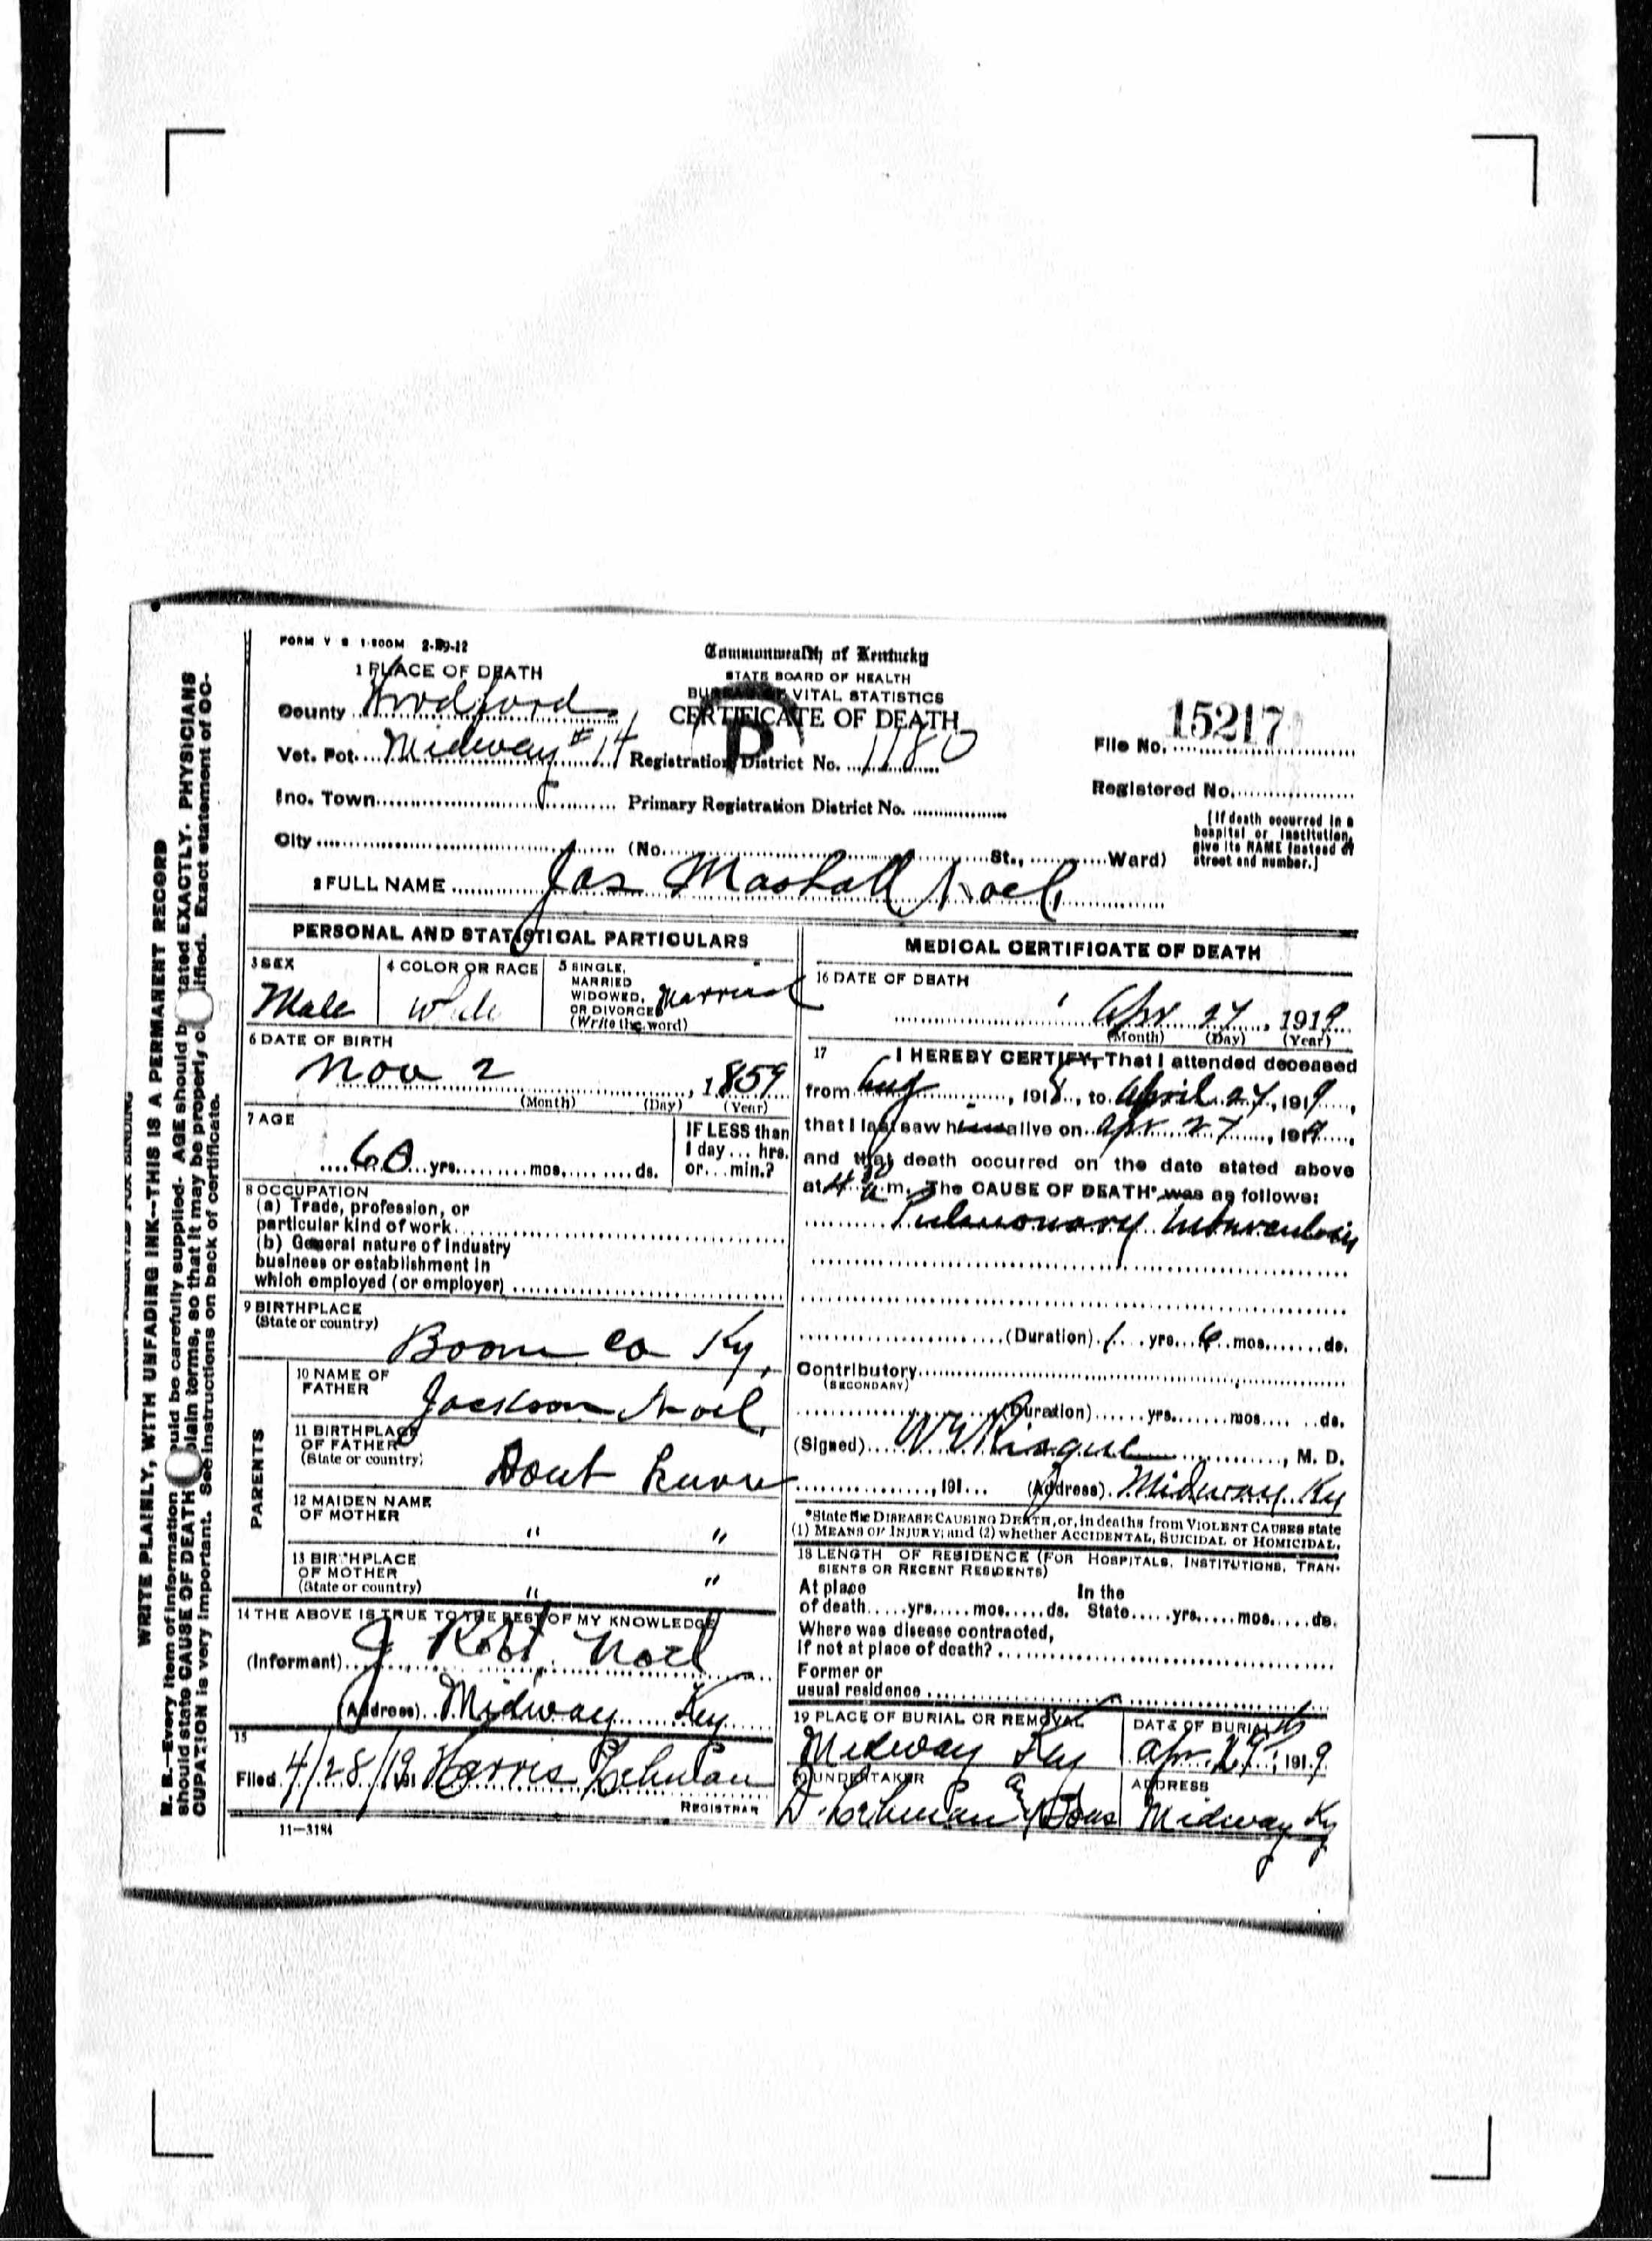 FORM V S 1-500M 2-29-12
Commonwealth of Kentucky
STATE BOARD OF HEALTH
BUREAU OF VITAL STATISTICS
CERTIFICATE OF DEATH
1 PLACE OF DEATH
County Woodford
Vot. Pct. Midway #14 Registration District No. 1180
File No. 15217
Inc. Town Primary Registration District No.
Registered No.
City (No. St., Ward)
[If death occurred in a
hospital or institution,
give its NAME instead of
street and number.]
2 FULL NAME Jas Mashall Noel
PERSONAL AND STATISTICAL PARTICULARS
3 SEX
Male
4 COLOR OR RACE
White
5 SINGLE,
MARRIED
WIDOWED,
OR DIVORCED
(Write the word)
Married
6 DATE OF BIRTH
Nov 2, 1859
(Month) (Day) (Year)
7 AGE
60 yrs. mos. ds.
IF LESS than
1 day ... hrs.
or ... min.?
8 OCCUPATION
(a) Trade, profession, or
particular kind of work
(b) General nature of industry
business or establishment in
which employed (or employer)
9 BIRTHPLACE
(State or country)
Boone Co Ky.
PARENTS
10 NAME OF
FATHER
Jackson Noel
11 BIRTHPLACE
OF FATHER
(State or country)
Dont know
12 MAIDEN NAME
OF MOTHER
" "
13 BIRTHPLACE
OF MOTHER
(State or country)
" "
14 THE ABOVE IS TRUE TO THE BEST OF MY KNOWLEDGE
(Informant) J Robt. Noel
(Address) Midway Ky
15
Filed 4/28/19 191 Harris Lehman
REGISTRAR
11—3184
MEDICAL CERTIFICATE OF DEATH
16 DATE OF DEATH
Apr 27, 1919
(Month) (Day) (Year)
17 I HEREBY CERTIFY, That I attended deceased
from Aug, 1918, to April 27, 1919,
that I last saw him alive on Apr 27, 1919,
and that death occurred on the date stated above
at 4 a m. The CAUSE OF DEATH* was as follows:
Pulmonary tuberculosis
(Duration) 1 yrs. 6 mos. ds.
Contributory
(SECONDARY)
(Duration) yrs. mos. ds.
(Signed) Risque, M. D.
, 191 (Address) Midway Ky
*State the DISEASE CAUSING DEATH, or, in deaths from VIOLENT CAUSES state
(1) MEANS OF INJURY; and (2) whether ACCIDENTAL, SUICIDAL or HOMICIDAL.
18 LENGTH OF RESIDENCE (FOR HOSPITALS, INSTITUTIONS, TRAN-
SIENTS OR RECENT RESIDENTS)
At place In the
of death yrs. mos. ds. State yrs. mos. ds.
Where was disease contracted,
if not at place of death?
Former or
usual residence
19 PLACE OF BURIAL OR REMOVAL
Midway Ky
DATE OF BURIAL
Apr. 29th, 1919
20 UNDERTAKER
D. Lehman and Sons
ADDRESS
Midway Ky
WRITE PLAINLY, WITH UNFADING INK—THIS IS A PERMANENT RECORD
N. B.—Every item of information should be carefully supplied. AGE should be stated EXACTLY. PHYSICIANS
should state CAUSE OF DEATH in plain terms, so that it may be properly classified. Exact statement of OC-
CUPATION is very important. See instructions on back of certificate.